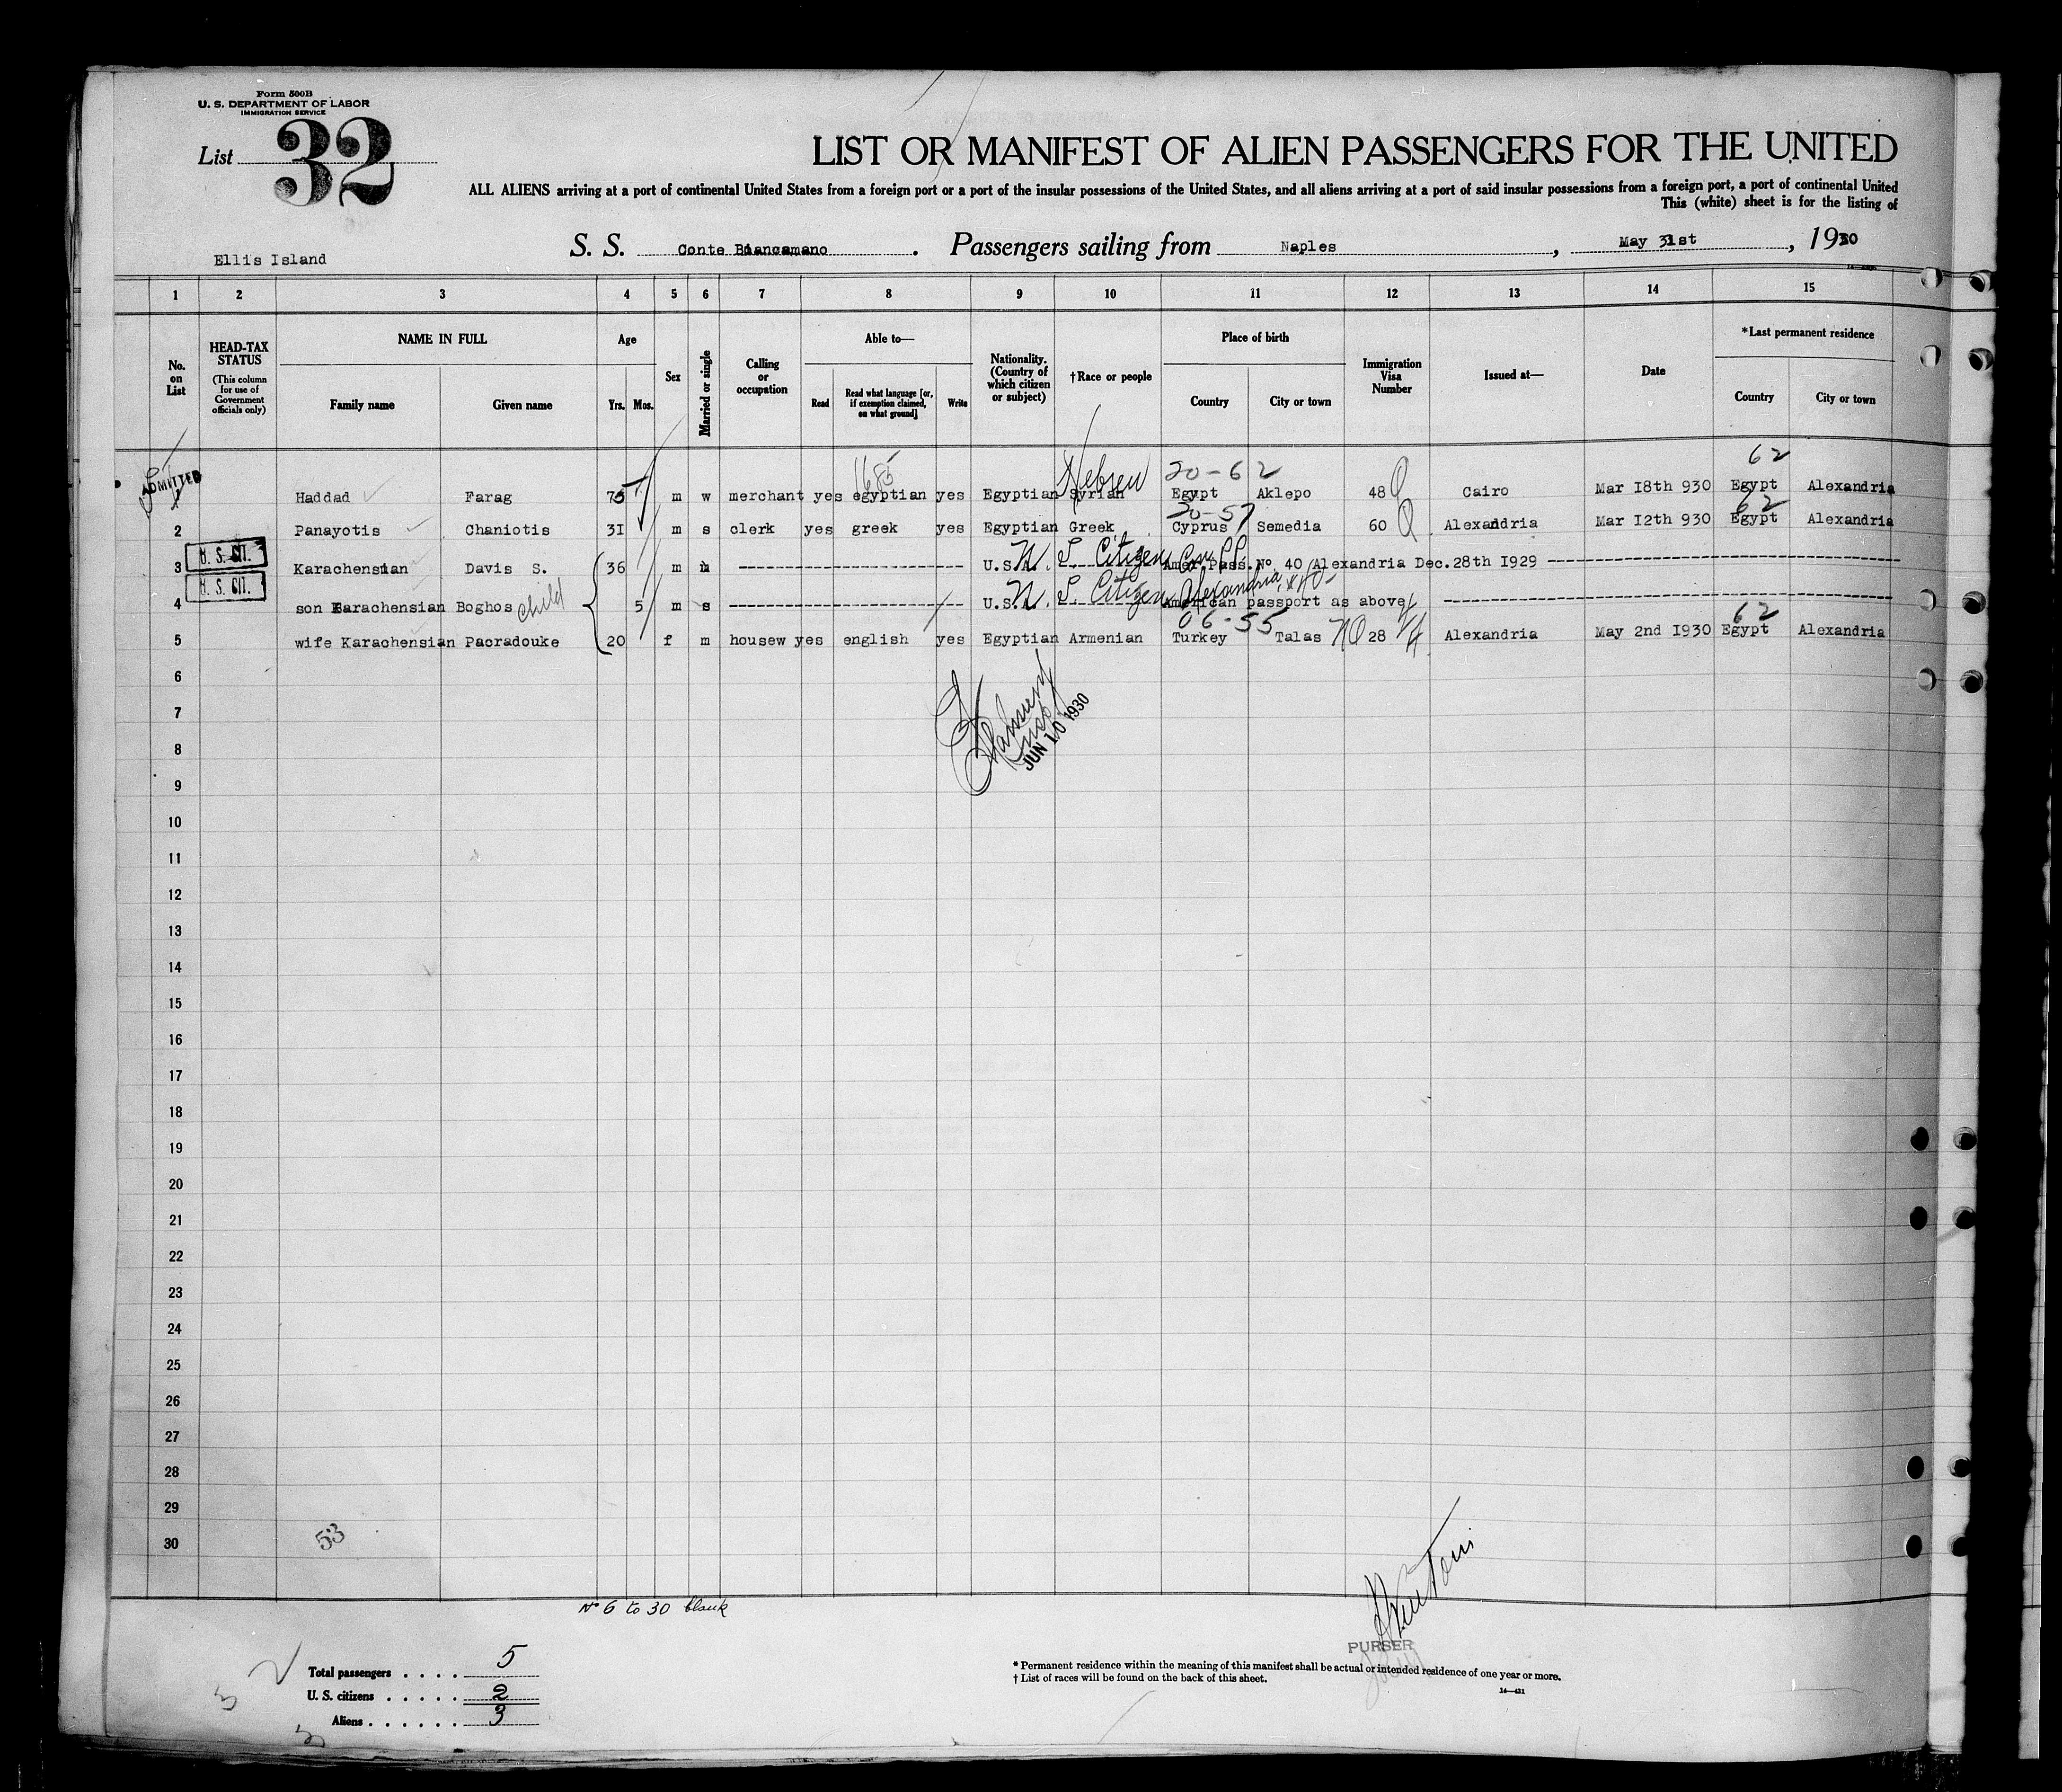 Form 500B
U. S. DEPARTMENT OF LABOR
IMMIGRATION SERVICE
List 32
LIST OR MANIFEST OF ALIEN PASSENGERS FOR THE UNITED
ALL ALIENS arriving at a port of continental United States from a foreign port or a port of the insular possessions of the United States, and all aliens arriving at a port of said insular possessions from a foreign port, a port of continental United
This (white) sheet is for the listing of
Ellis Island
S. S. Conte Biancamano. Passengers sailing from Naples, May 31st, 1930
1 2 3 4 5 6 7 8 9 10 11 12 13 14 15
No. on List
HEAD-TAX STATUS (This column for use of Government officials only)
NAME IN FULL
Family name
Given name
Age
Yrs. Mos.
Sex
Married or single
Calling or occupation
Able to—
Read
Read what language [or, if exemption claimed, on what ground]
Write
Nationality. (Country of which citizen or subject)
†Race or people
Place of birth
Country
City or town
Immigration Visa Number
Issued at—
Date
*Last permanent residence
Country
City or town
ADMITTED
685 Hebrew 20-62 62
Haddad Farag 75 m w merchant yes egyptian yes Egyptian Syrian Egypt Aklepo 48 Cairo Mar 18th 930 Egypt Alexandria
20-57 62
2 Panayotis Chaniotis 31 m s clerk yes greek yes Egyptian Greek Cyprus Semedia 60 Alexandria Mar 12th 930 Egypt Alexandria
U. S. CIT.
U. S. Citizen
3 Karachensian Davis S. 36 m m U.S.A. Amer.Pass.No. 40 Alexandria Dec.28th 1929
U. S. CIT.
U. S. Citizen Alexandria
4 son Karachensian Boghos child 5 m s U.S.A. American passport as above
06-55 62
5 wife Karachensian Pacradouke 20 f m housew yes english yes Egyptian Armenian Turkey Talas NQ 28 Alexandria May 2nd 1930 Egypt Alexandria
JUN 10 1930
6
7
8
9
10
11
12
13
14
15
16
17
18
19
20
21
22
23
24
25
26
27
28
29
30
53
No 6 to 30 blank
PURSER
Total passengers . . . . 5
U. S. citizens . . . . . 2
Aliens . . . . . . 3
* Permanent residence within the meaning of this manifest shall be actual or intended residence of one year or more.
† List of races will be found on the back of this sheet.
14—421